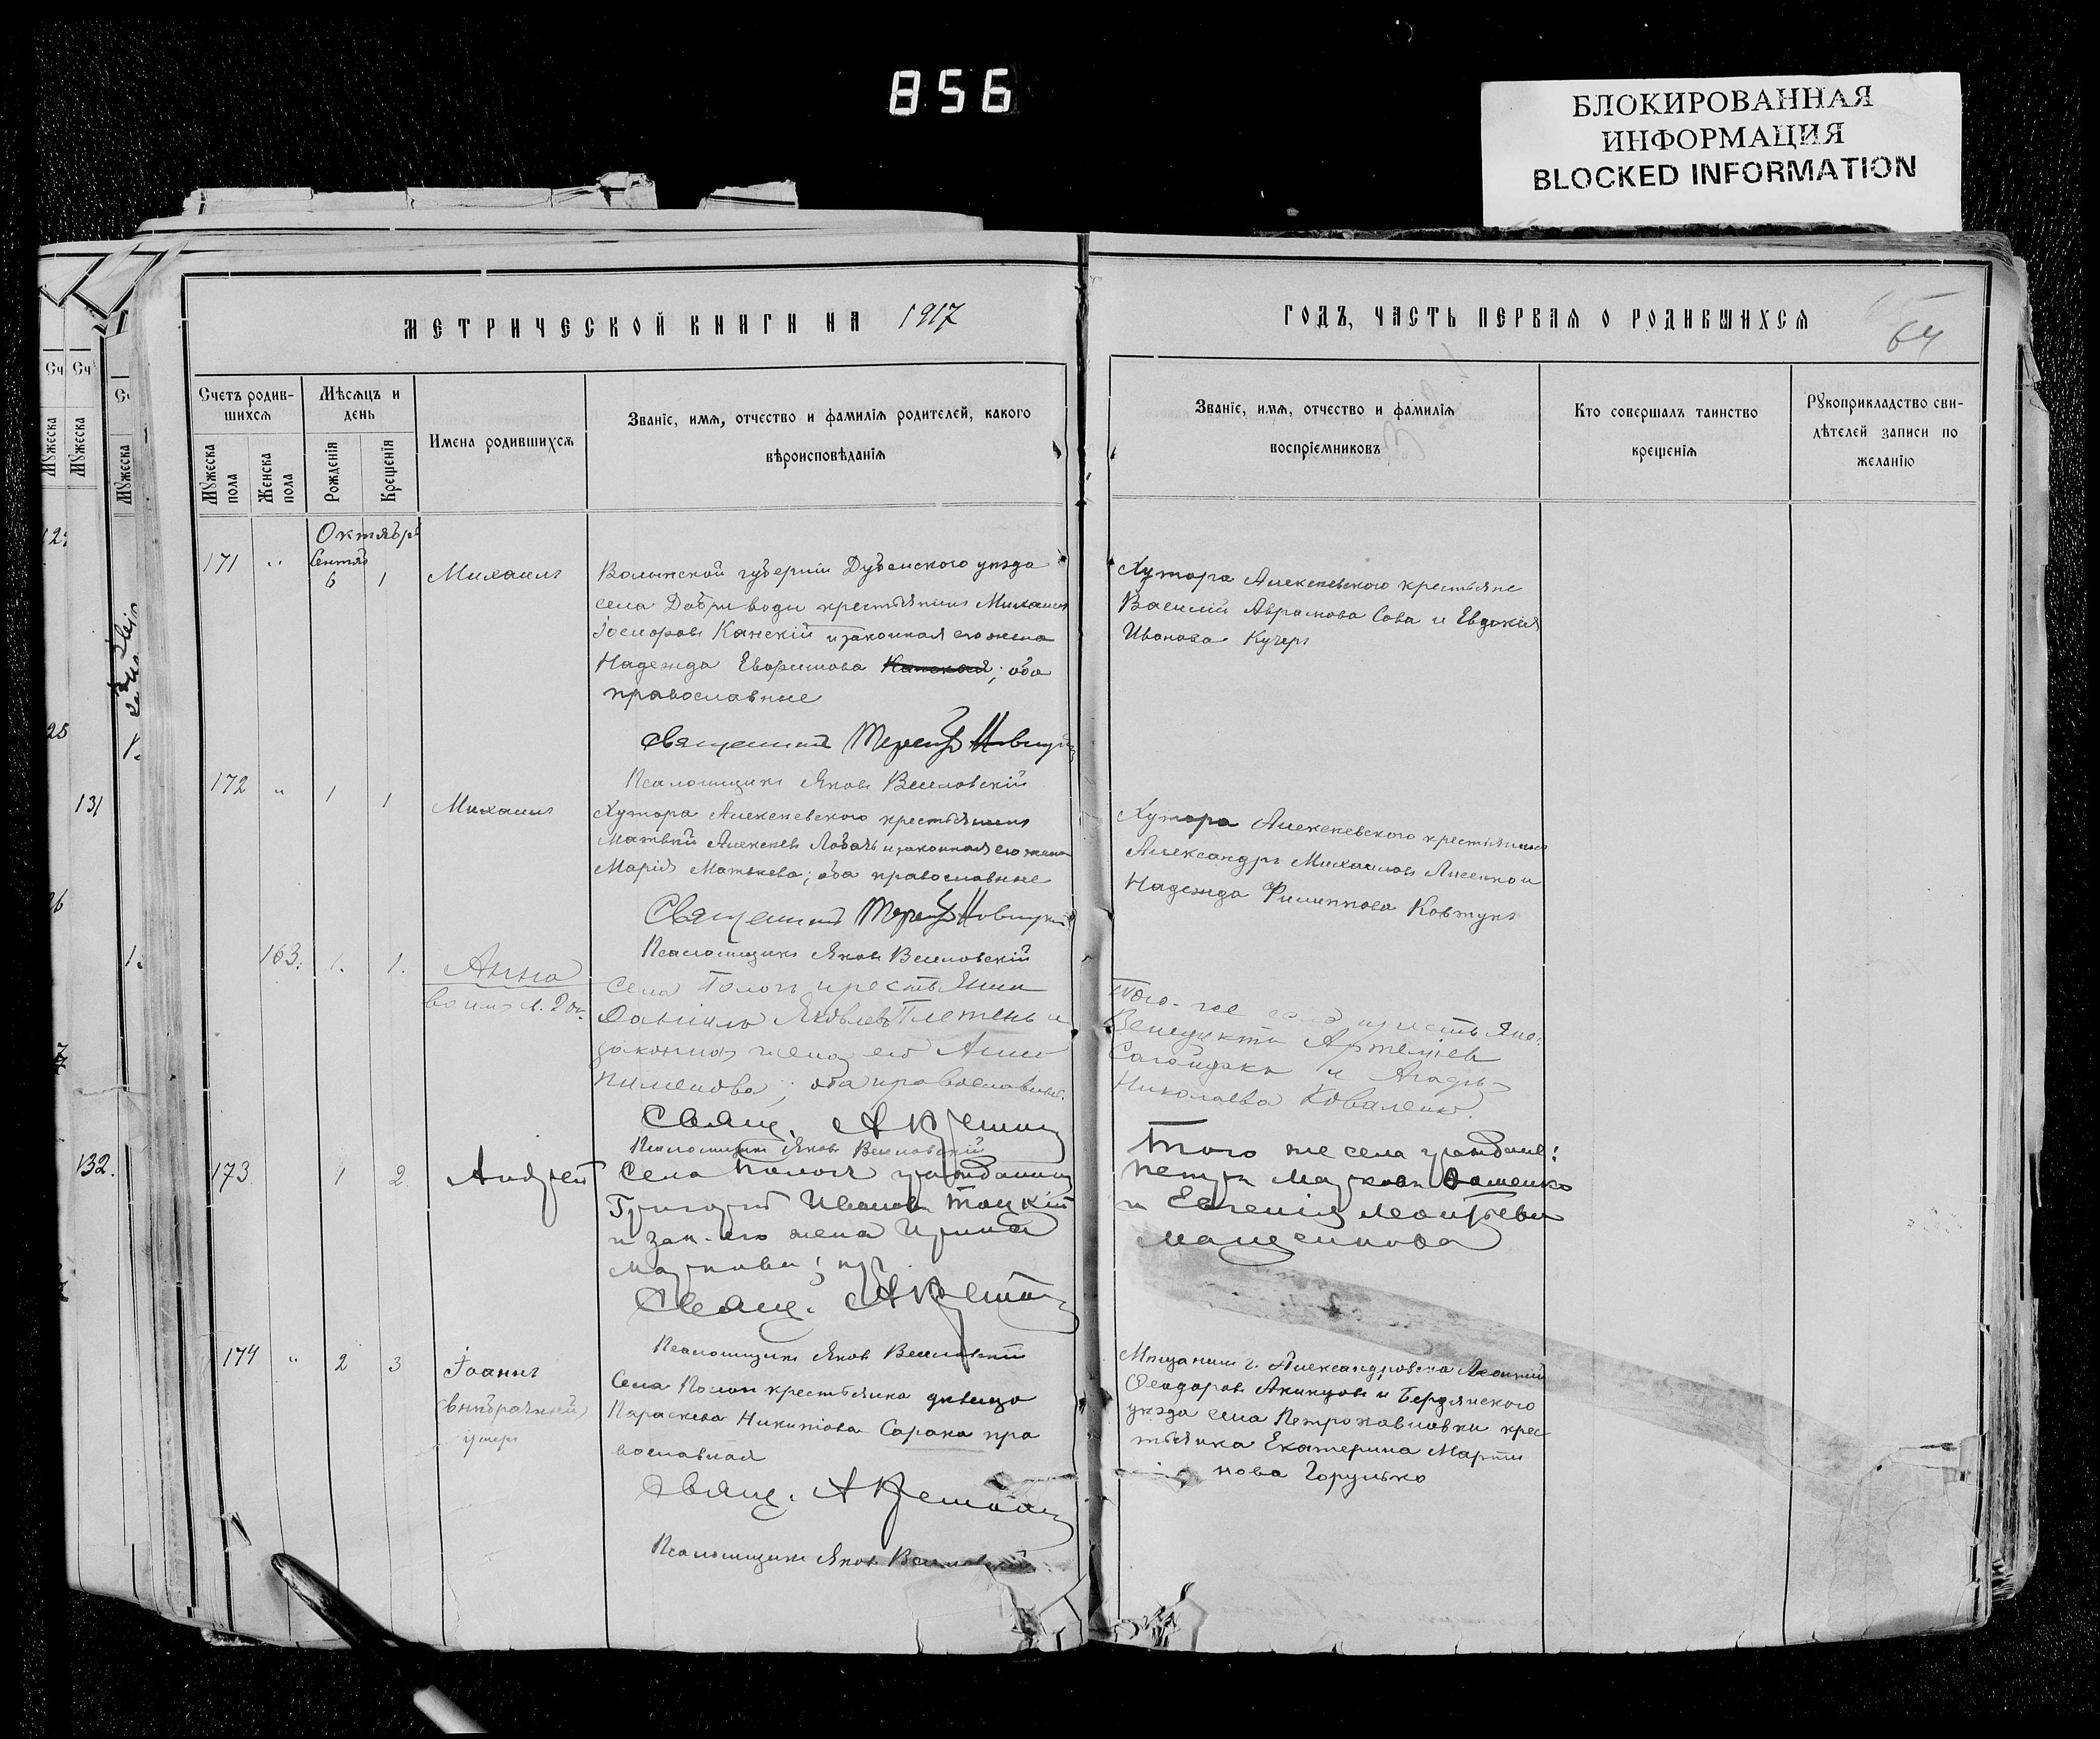 856
БЛОКИРОВАННАЯ
ИНФОРМАЦИЯ
BLOCKED INFORMATION
МЕТРИЧЕСКОЙ КНИГИ НА 1917
ГОДЪ, ЧАСТЬ ПЕРВАЯ О РОДИВШИХСЯ
64
Счетъ родив-
шихся
Мѣсяцъ и
день
Мужеска
пола
Женска
пола
Рожденія
Крещенія
Имена родившихся
Званіе, имя, отчество и фамилія родителей, какого
вѣроисповѣданія
Званіе, имя, отчество и фамилія
воспріемниковъ
Кто совершалъ таинство
крещенія
Рукоприкладство сви-
дѣтелей записи по
желанію
Октябрь
171 " Сентяб 6 1 Михаилъ
Волынской губерніи Дубенскаго уѣзда
села Добриводы крестьянинъ Михаилъ
Канскій и законная его жена
Надежда ; оба
православные
Священникъ Терентій Новицкій
Псаломщикъ Яковъ Веселовскій
Хутора Алексѣевского крестьяне
Василій Аврамова Сова и Евдокія
Иванова Кучеръ
172 " 1 1 Михаилъ
Хутора Алексѣевского крестьянинъ
Матвѣй Алексѣевъ Лобачъ и законная его жена
Марія Матвѣева; оба православные
Священникъ Терентій Новицкій
Псаломщикъ Яковъ Веселовскій
Хутора Алексѣевского крестьянинъ
Александръ Михаиловъ Лисенко и
Надежда Филиппова Ковтунъ
163. 1. 1. Анна
Села Пологъ крестьянинъ
Даніилъ Яковлевъ Плетень и
законная жена его Анна
Пименова; оба православные.
Свящ.
Псаломщикъ Яковъ Веселовскій
Того-же села крестьяне:
Венедиктъ Артеміевъ
Сагайдакъ и
Николаева Коваленко.
173 1 2 Андрей
Села Пологъ гражданинъ
Григорій Ивановъ Тоцкій
и зак. его жена Ирина
Маркова; пр.
Свящ.
Псаломщикъ Яковъ Веселовскій
Того же села граждане:
Петръ Марковъ Дашенко
и Евгенія Леонтьева
174 " 2 3 Іоаннъ
(внѣбрачный)
умеръ
Села Пологъ крестьянка дѣвица
Параскева Никитова Сорока пра
вославная
Свящ.
Псаломщикъ Яковъ Веселовскій
Мѣщанинъ г. Александровска Леонтій
Феодоровъ Акинцовъ и Бердянского
уѣзда села Петропавловки крес
тьянка Екатерина Марти
нова Горулько
131
132.